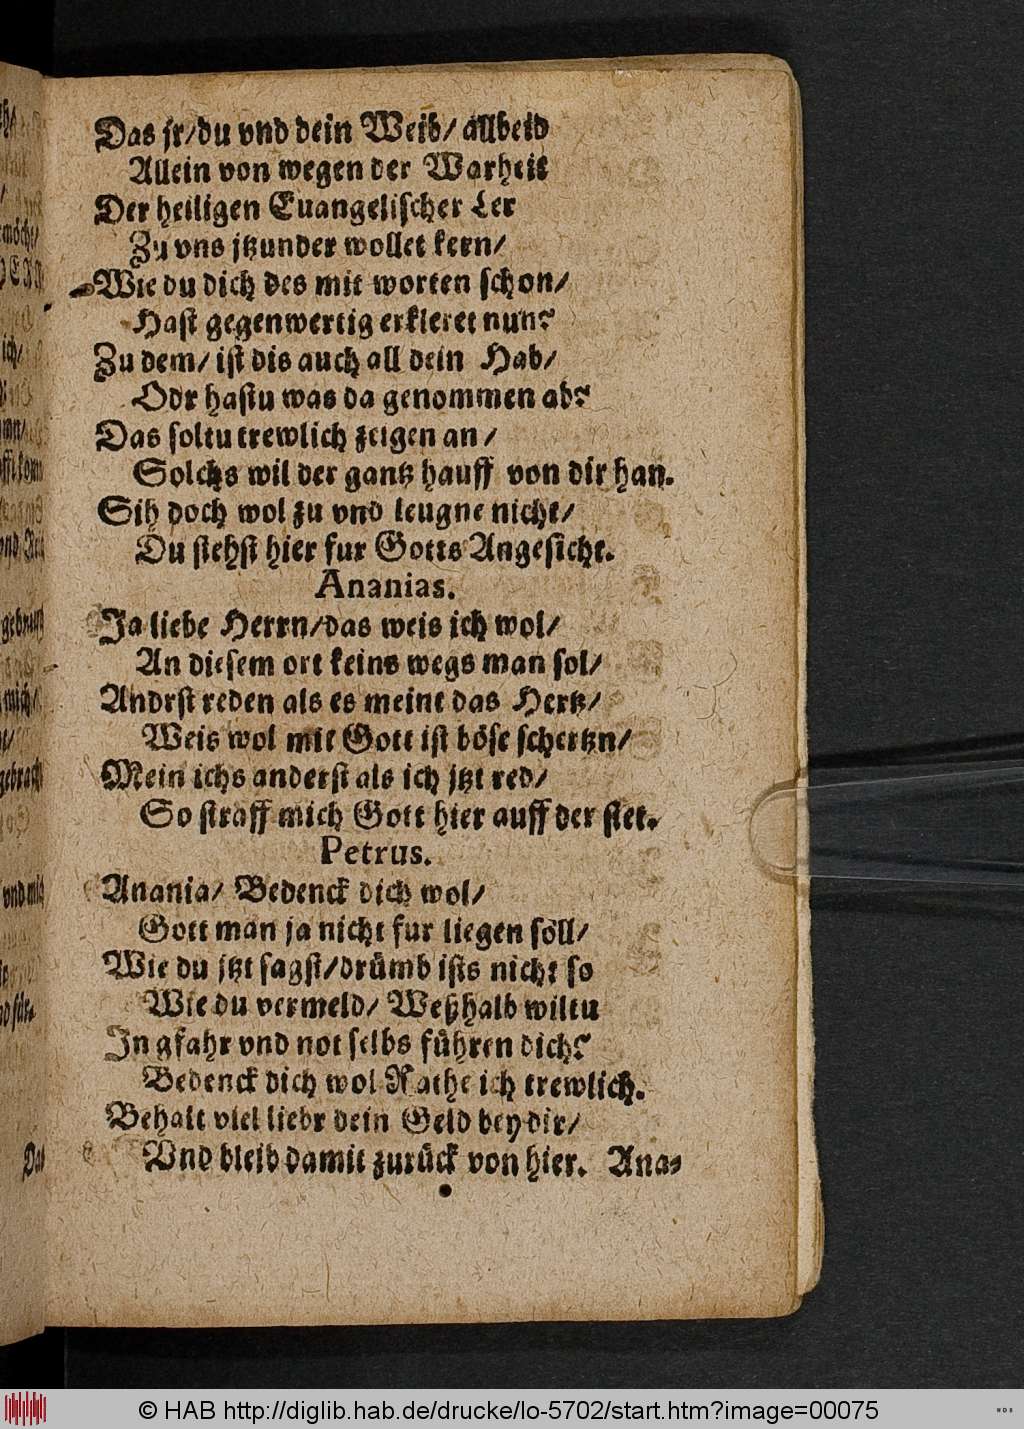 Das jr/du vnd dein Weib/ allbeid
Allein von wegen der Warheit
Der heiligen Euangelischer Ler
Zu vns jtzunder wollet kern/
Wie du dich des mit worten schon/
Hast gegenwertig erkleret nun?
Zu dem/ ist dis auch all dein Hab/
Odr hastu was da genommen ab?
Das soltu trewlich zeigen an/
Solchs wil der gantz hauff von dir han.
Sih doch wol zu vnd leugne nicht/
Du stehst hier fur Gotts Angesicht.
Ananias.
Ja liebe Herrn/das weis ich wol/
An diesem ort keins wegs man sol/
Andrst reden als es meint das Hertz/
Weis wol mit Gott ist böse schertzn/
Mein ichs anderst als ich jtzt red/
So straff mich Gott hier auff der stet.
Petrus.
Anania/ Bedenck dich wol/
Gott man ja nicht fur liegen söll/
Wie du jtzt sagst/drümb ists nicht so
Wie du vermeld/ Weßhalb wiltu
In gfahr vnd not selbs führen dich?
Bedenck dich wol Rathe ich trewlich.
Behalt viel liebr dein Geld bey dir/
Vnd bleib damit zurück von hier. Ana-
© HAB http://diglib.hab.de/drucke/lo-5702/start.htm?image=00075